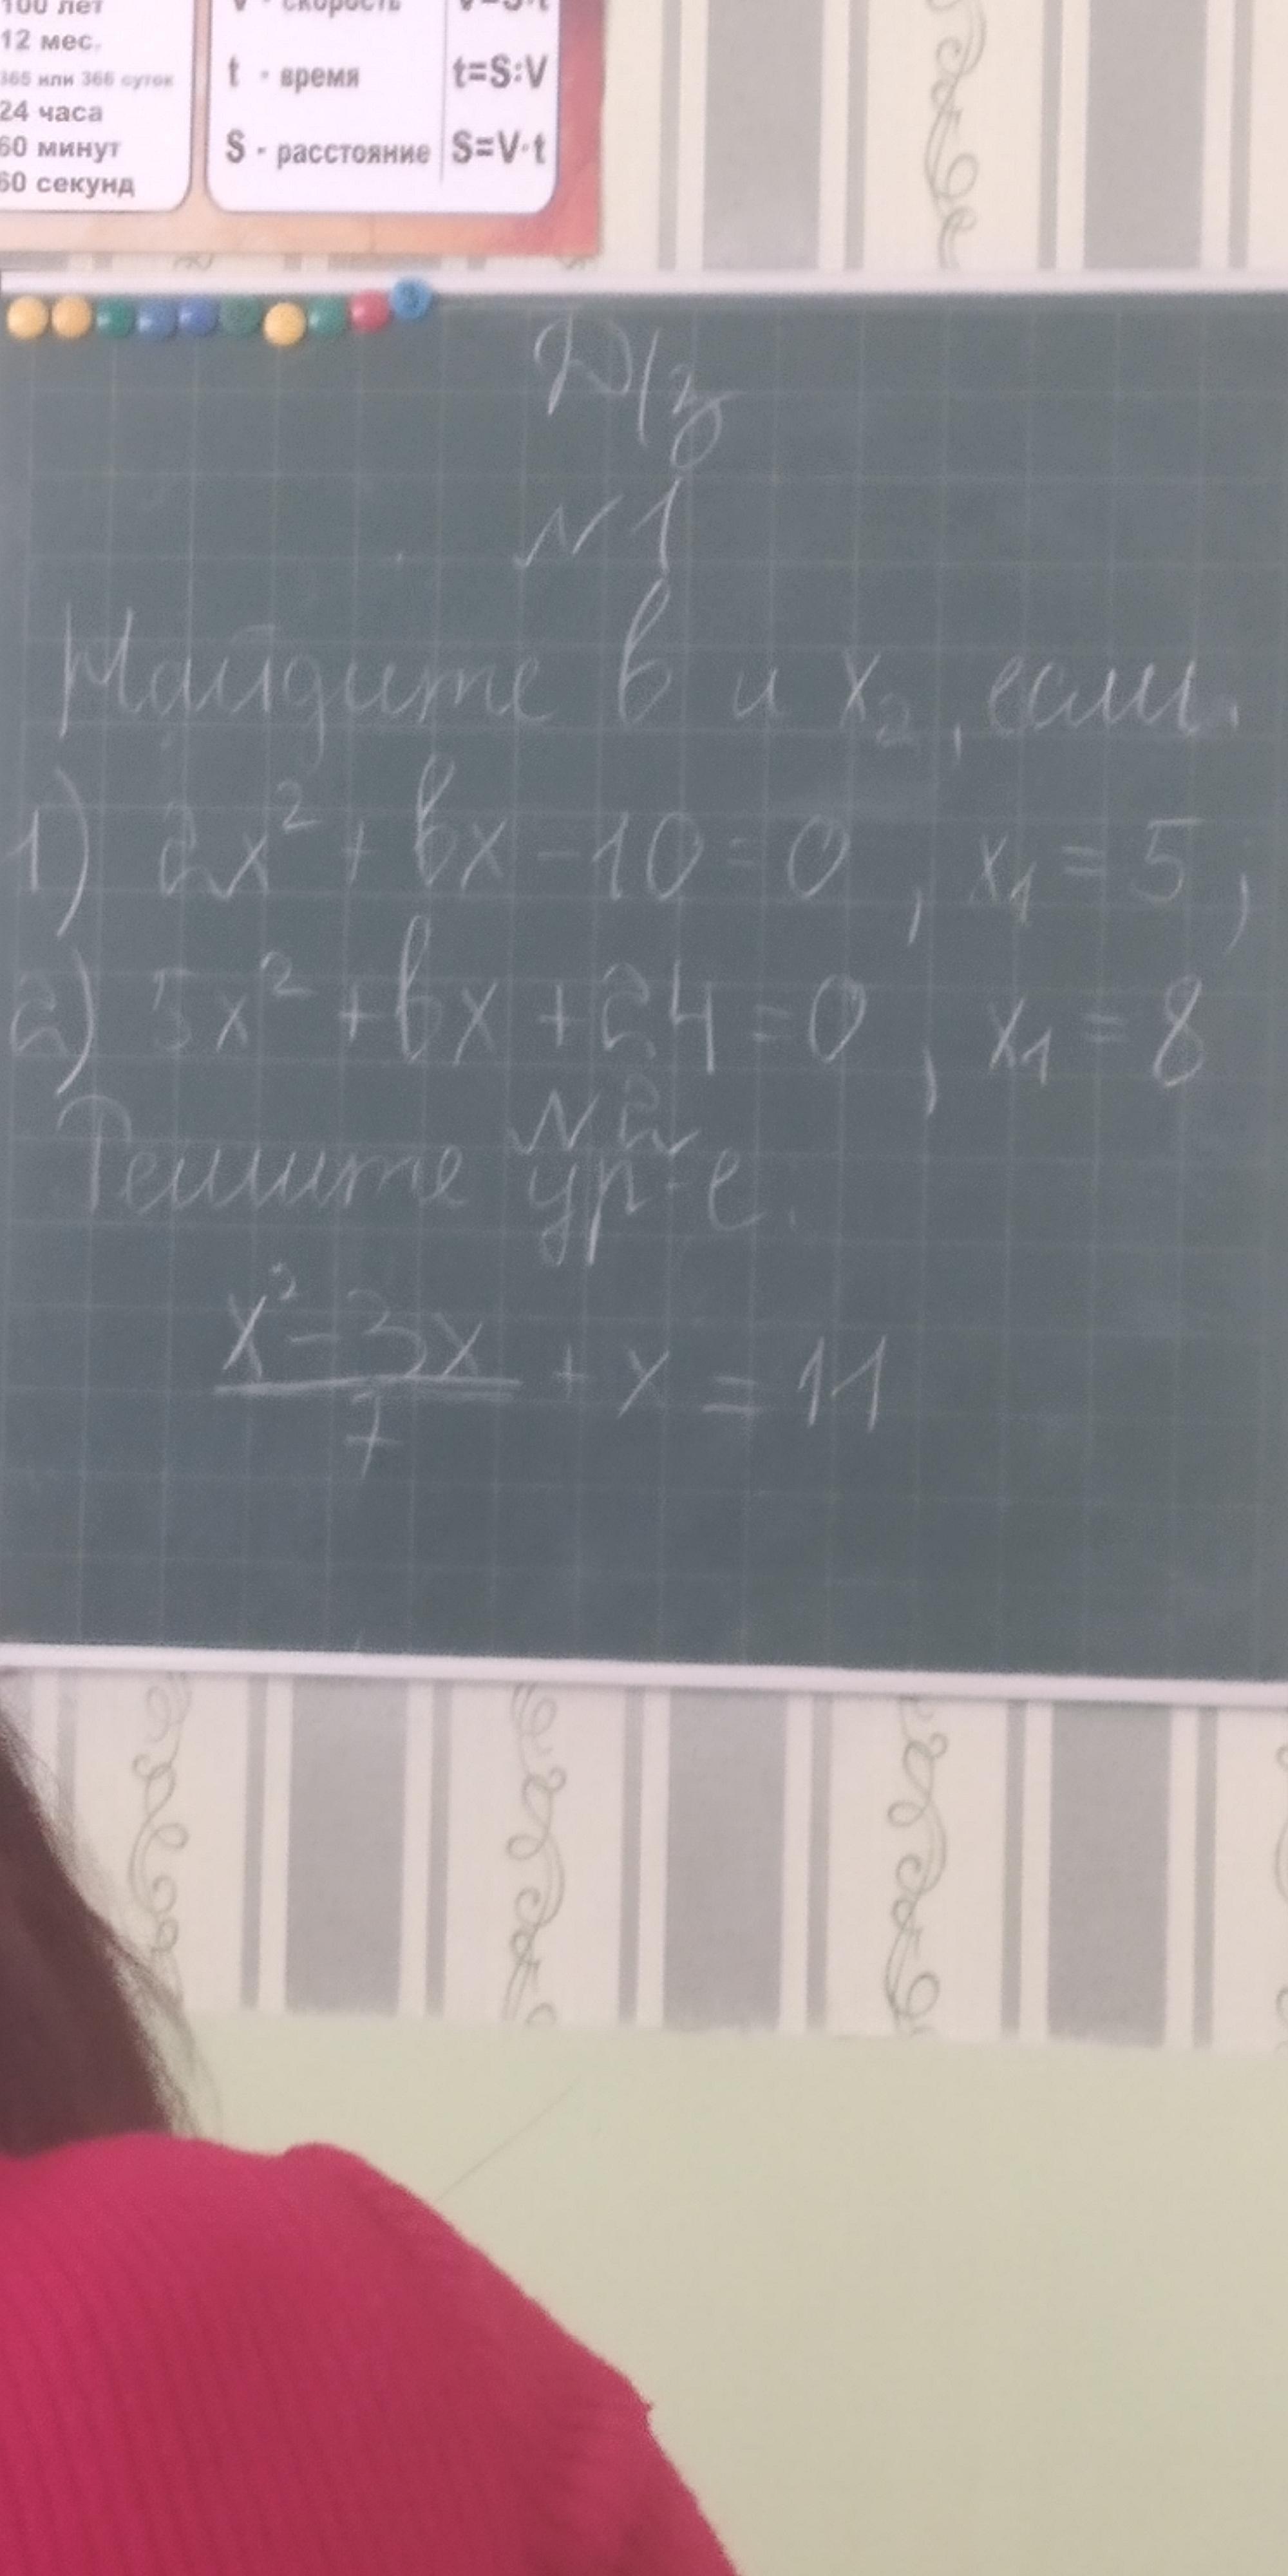 100 лет
12 мес.
365 или 366 суток
24 часа
60 минут
60 секунд
V - скорость V=S:t
t - время t=S:V
S - расстояние S=V·t
Д/з
№1
Найдите b и x₂, если:
1) 2x² + bx - 10 = 0, x₁ = 5;
2) 3x² + bx + 24 = 0, x₁ = 8
№2
Решите ур-е.
x² - 3x
7
+ x = 11